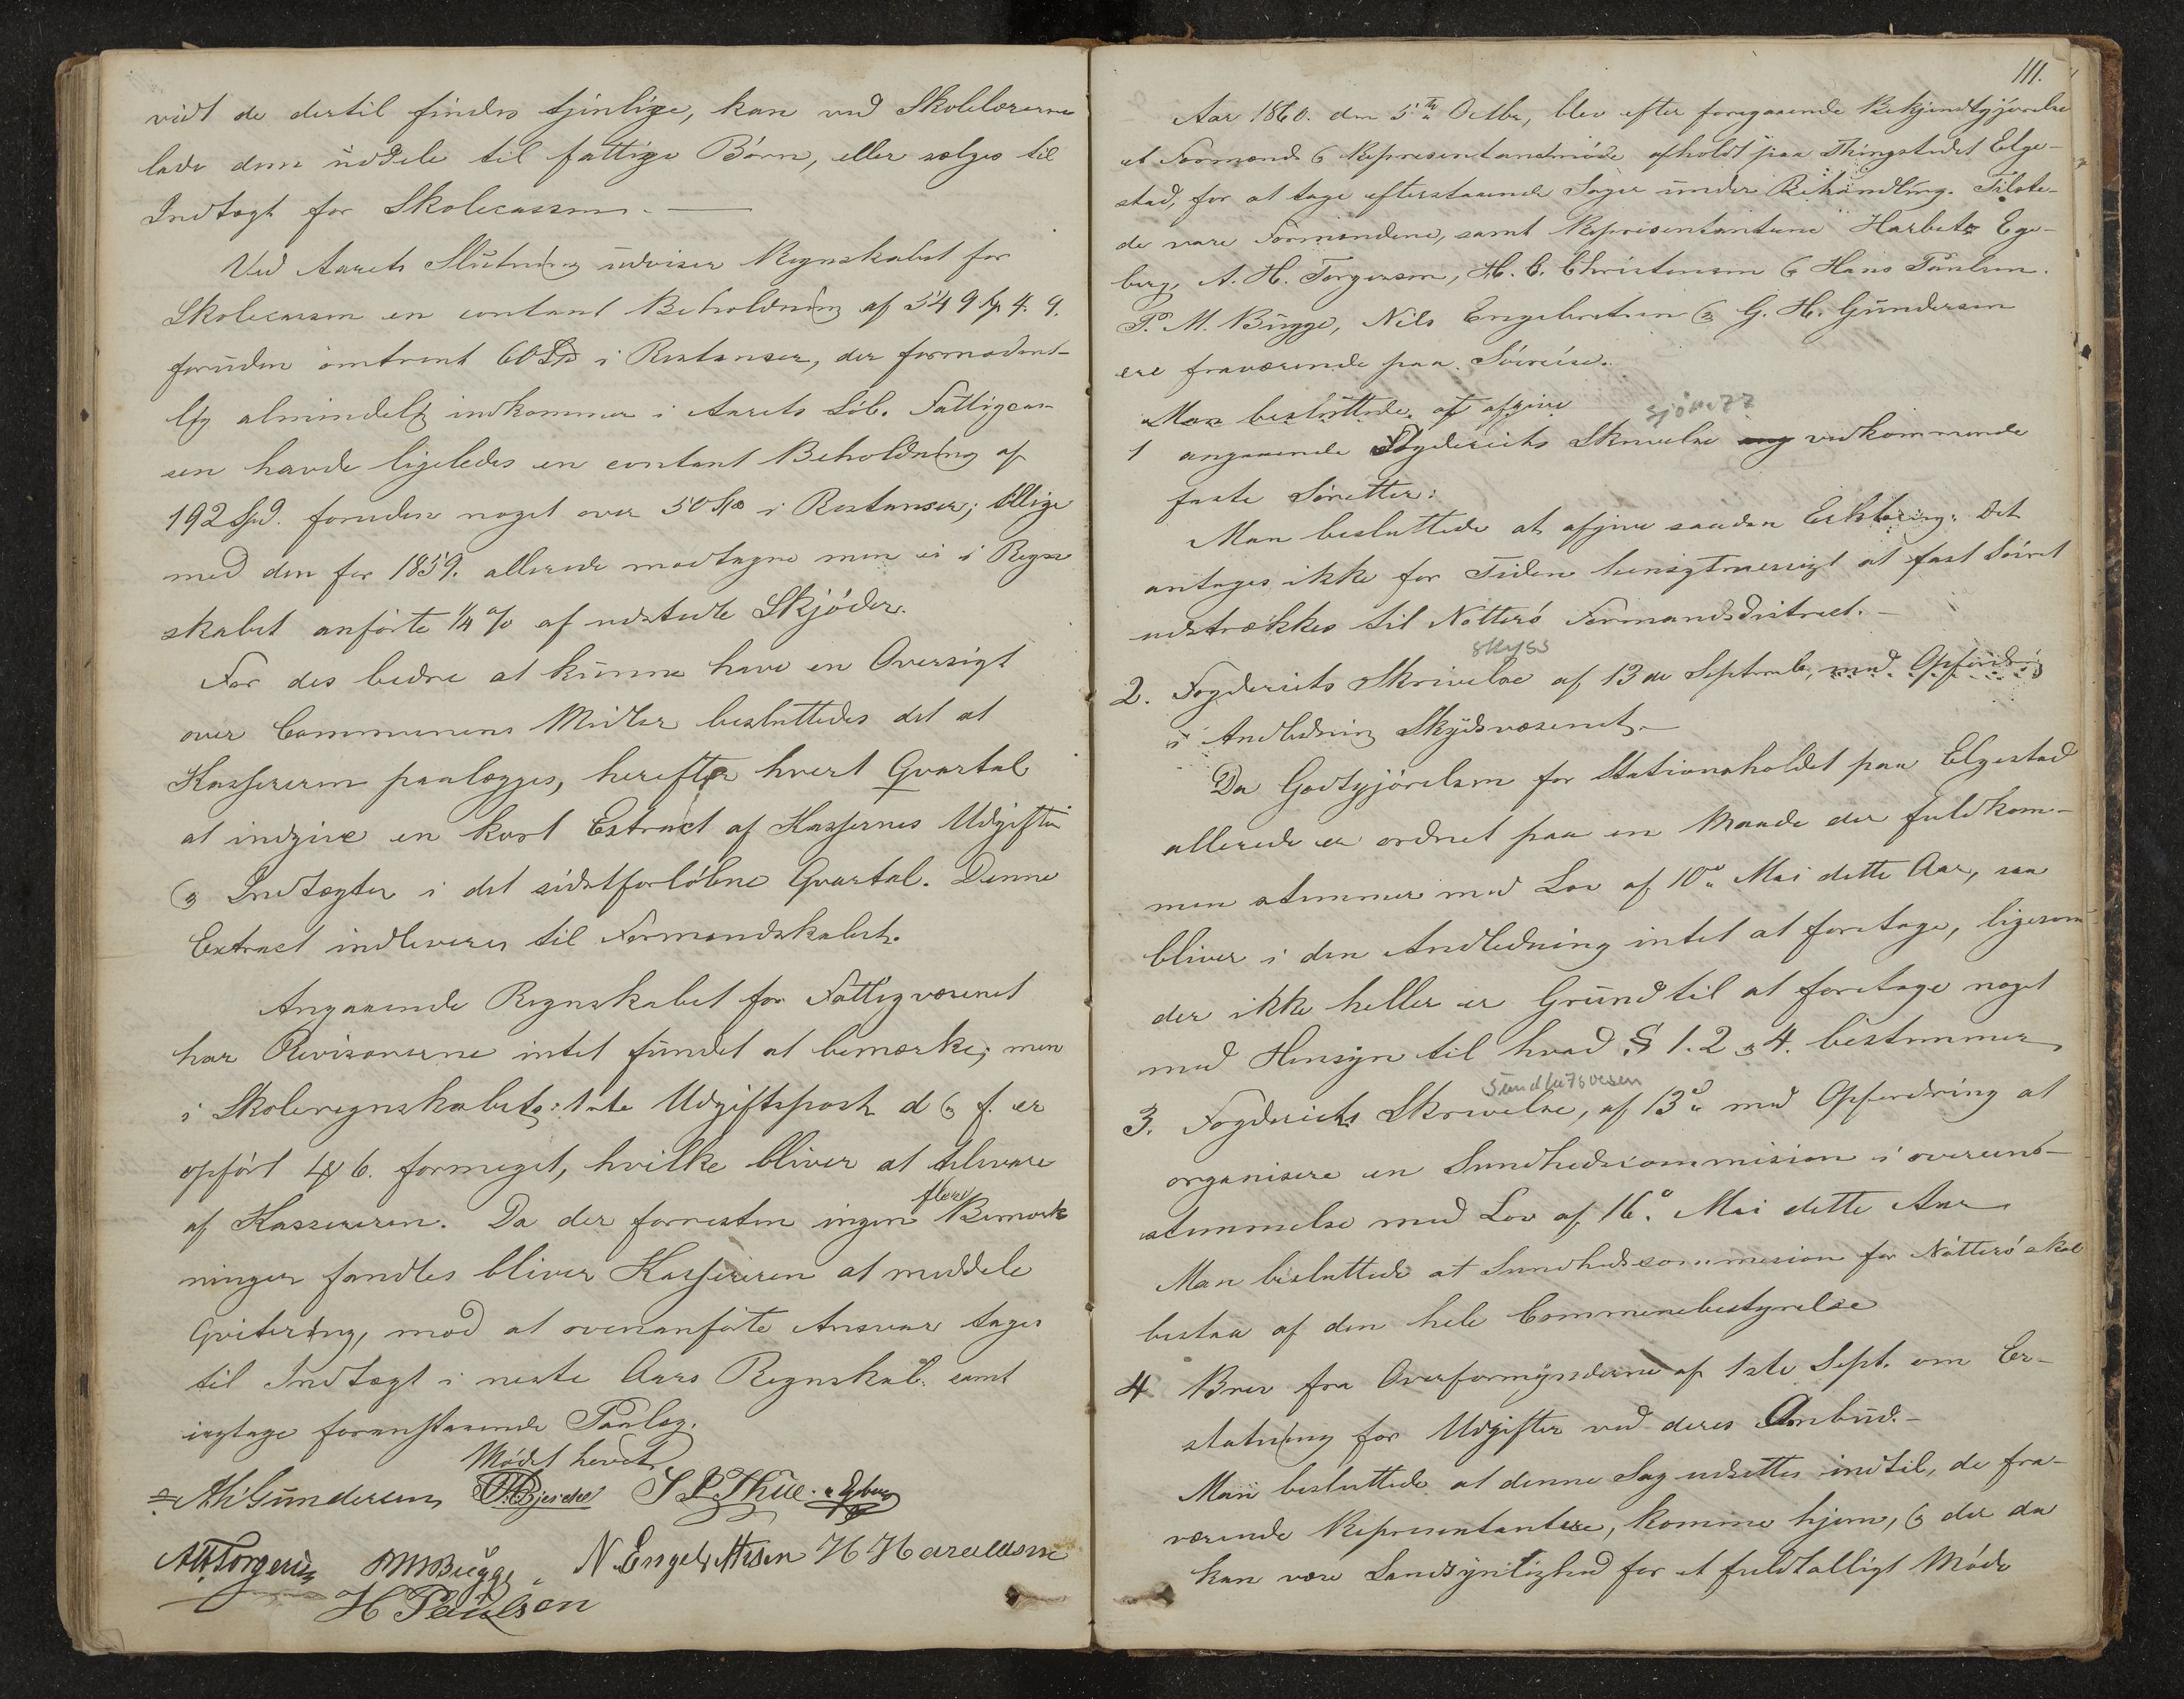 vidt de dertil findes tjenlige, kan ved Skolelærerne
lade dem uddele til fattige Börn, eller sælges til
Indtægt for Skolecassen. —
Ved Aarets Slutning udviser Regnskabet for
Skolecassen en contant Beholdning af 9 4. 9.
foruden omtrent 60 i Restanser, der formodent-
lig almindelig indkommer i Aarets Löb. Fattigcas-
sen havde ligeledes en contant Beholdning af
192 Spd. foruden noget over 50 i Restanser; tillige
med den for 1859. allerede modtagne men ei i Regn
skabet anförte 1/4 % af udstedte Skjöder.
For des bedre at kunne have en Oversigt
over Communens Midler besluttedes det at
Kassereren paalægges, herefter hvert Qvartal
at indgive en kort Extract af Kassernes Udgifter
og Indtægter i det sidstforløbne Qvartal. Denne
Extract indleveres til Formandskabet.
Angaaende Regnskabet for Fattigvæsenet
har Revisorerne intet fundet at bemærke; men
i Skoleregnskabets 1ste Udgiftspost d og f. er
opfört 6. formeget, hvilke bliver at tilsvare
af Kassereren. Da der forresten ingen flere Bemærk
ninger fandtes bliver Kassereren at meddele
Qvitering, mod at ovenanförte Ansvar tages
til Indtægt i neste Aars Regnskab. samt
iagtage foranstaaende Paalæg.
Mödet hævet
AhGundersen OBjerche S P Thue
AHTorgersen MBugge N. Engelbrettsen H Haraldsen
H Paulsen
111.
Aar 1860. den 5te Octbr, blev efter foregaaende Bekjendtgjörelse
et Formands og Representantmöde afholdt paa Thingstedet Elge-
stad, for at tage efterstaaende Sager under Behandling. Tilste-
de vare Formændene, samt Representanterne Ege-
berg, A. H. Torgersen, H. C. Christensen og Hans Paulsen.
P. M. Bugge, Nils Engebretsen og G. H. Gundersen
ere fraværende paa Söreise.
Man besluttede at afgive
sjörett
1 angaaende Fogderiets Skrivelse ang vedkommende
faste Söretter:
Man besluttede at afgive saadan Erklæring: Det
antages ikke for Tiden hensigtmæssigt at fast Söret
udstrækkes til Nötterö Formandsdistrict. —
skyss
2. Fogderiets Skrivelse af 13de Septembr, med Opfordring
i Andledning Skydsvæsenet. —
Da Godtgjörelsen for Stationsholdet paa Elgestad
allerede er ordnet paa en Maade der fuldkom-
men stemmer med Lov af 10de Mai dette Aar, saa
bliver i den Andledning intet at foretage, ligesom
der ikke heller er Grund til at foretage noget
med Hensyn til hvad § 1. 2 og 4. bestemmer
sundhetsvesen
3. Fogderiets Skrivelse, af 13de med Opfordring at
organisere en Sundhedscommision i overens-
stemmelse med Lov af 16de Mai dette Aar
Man besluttede at Sundhedscommision for Nötterö skal
bestaa af den hele Communebestyrelse
4 Brev fra Overformynderne af 1ste Sept. om Er-
statning for Udgifter ved deres Ombud. —
Man besluttede at denne Sag udsettes indtil, de fra-
værende Representantere, komme hjem, og der da
kan være Sandsynlighed for et fuldtalligt Möde